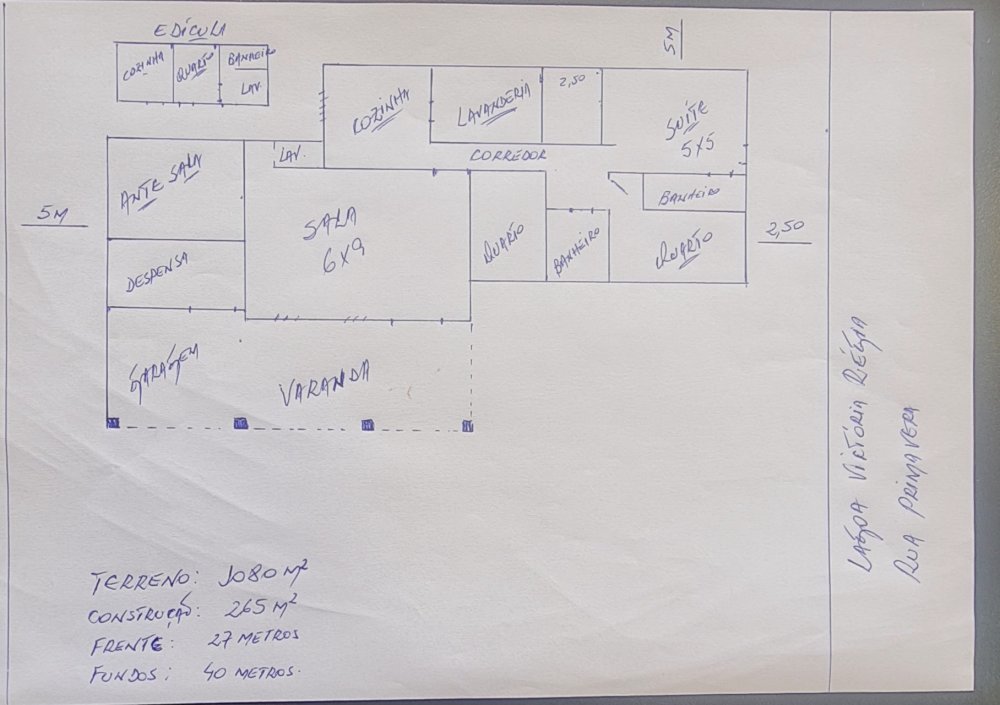 EDÍCULA
COZINHA
QUARTO
BANHEIRO
LAV.
5M
COZINHA
LAVANDERIA
2,50
SUÍTE
5X5
CORREDOR
LAV.
ANTE SALA
5M
SALA
6X9
BANHEIRO
QUARTO
BANHEIRO
QUARTO
2,50
DESPENSA
GARAGEM
VARANDA
LAGOA VIRTÓRIA RIÉGIA
RUA PRIMAVERA
TERRENO: 1080 M²
CONSTRUÇÃO: 265 M²
FRENTE: 27 METROS
FUNDOS: 40 METROS.